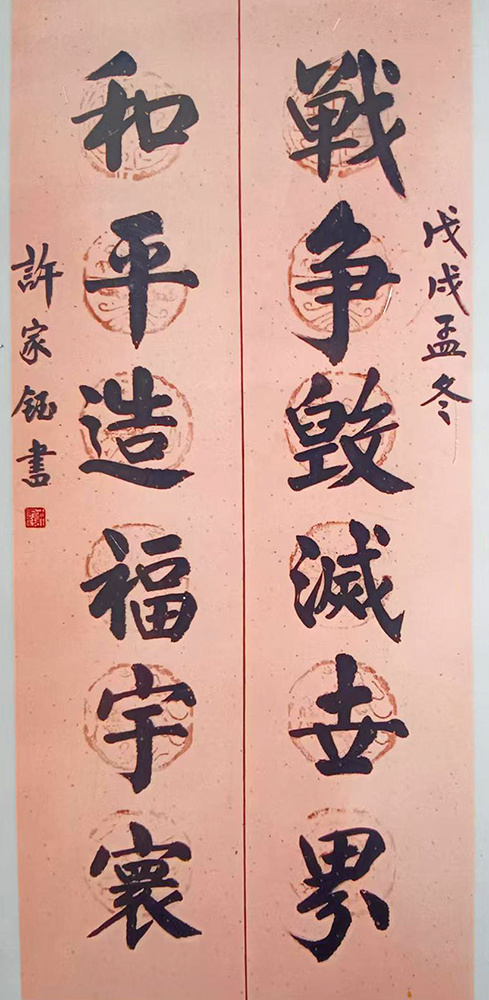 戊戌孟冬
戦争毁滅世界
和平造福宇寰
許家鈺書